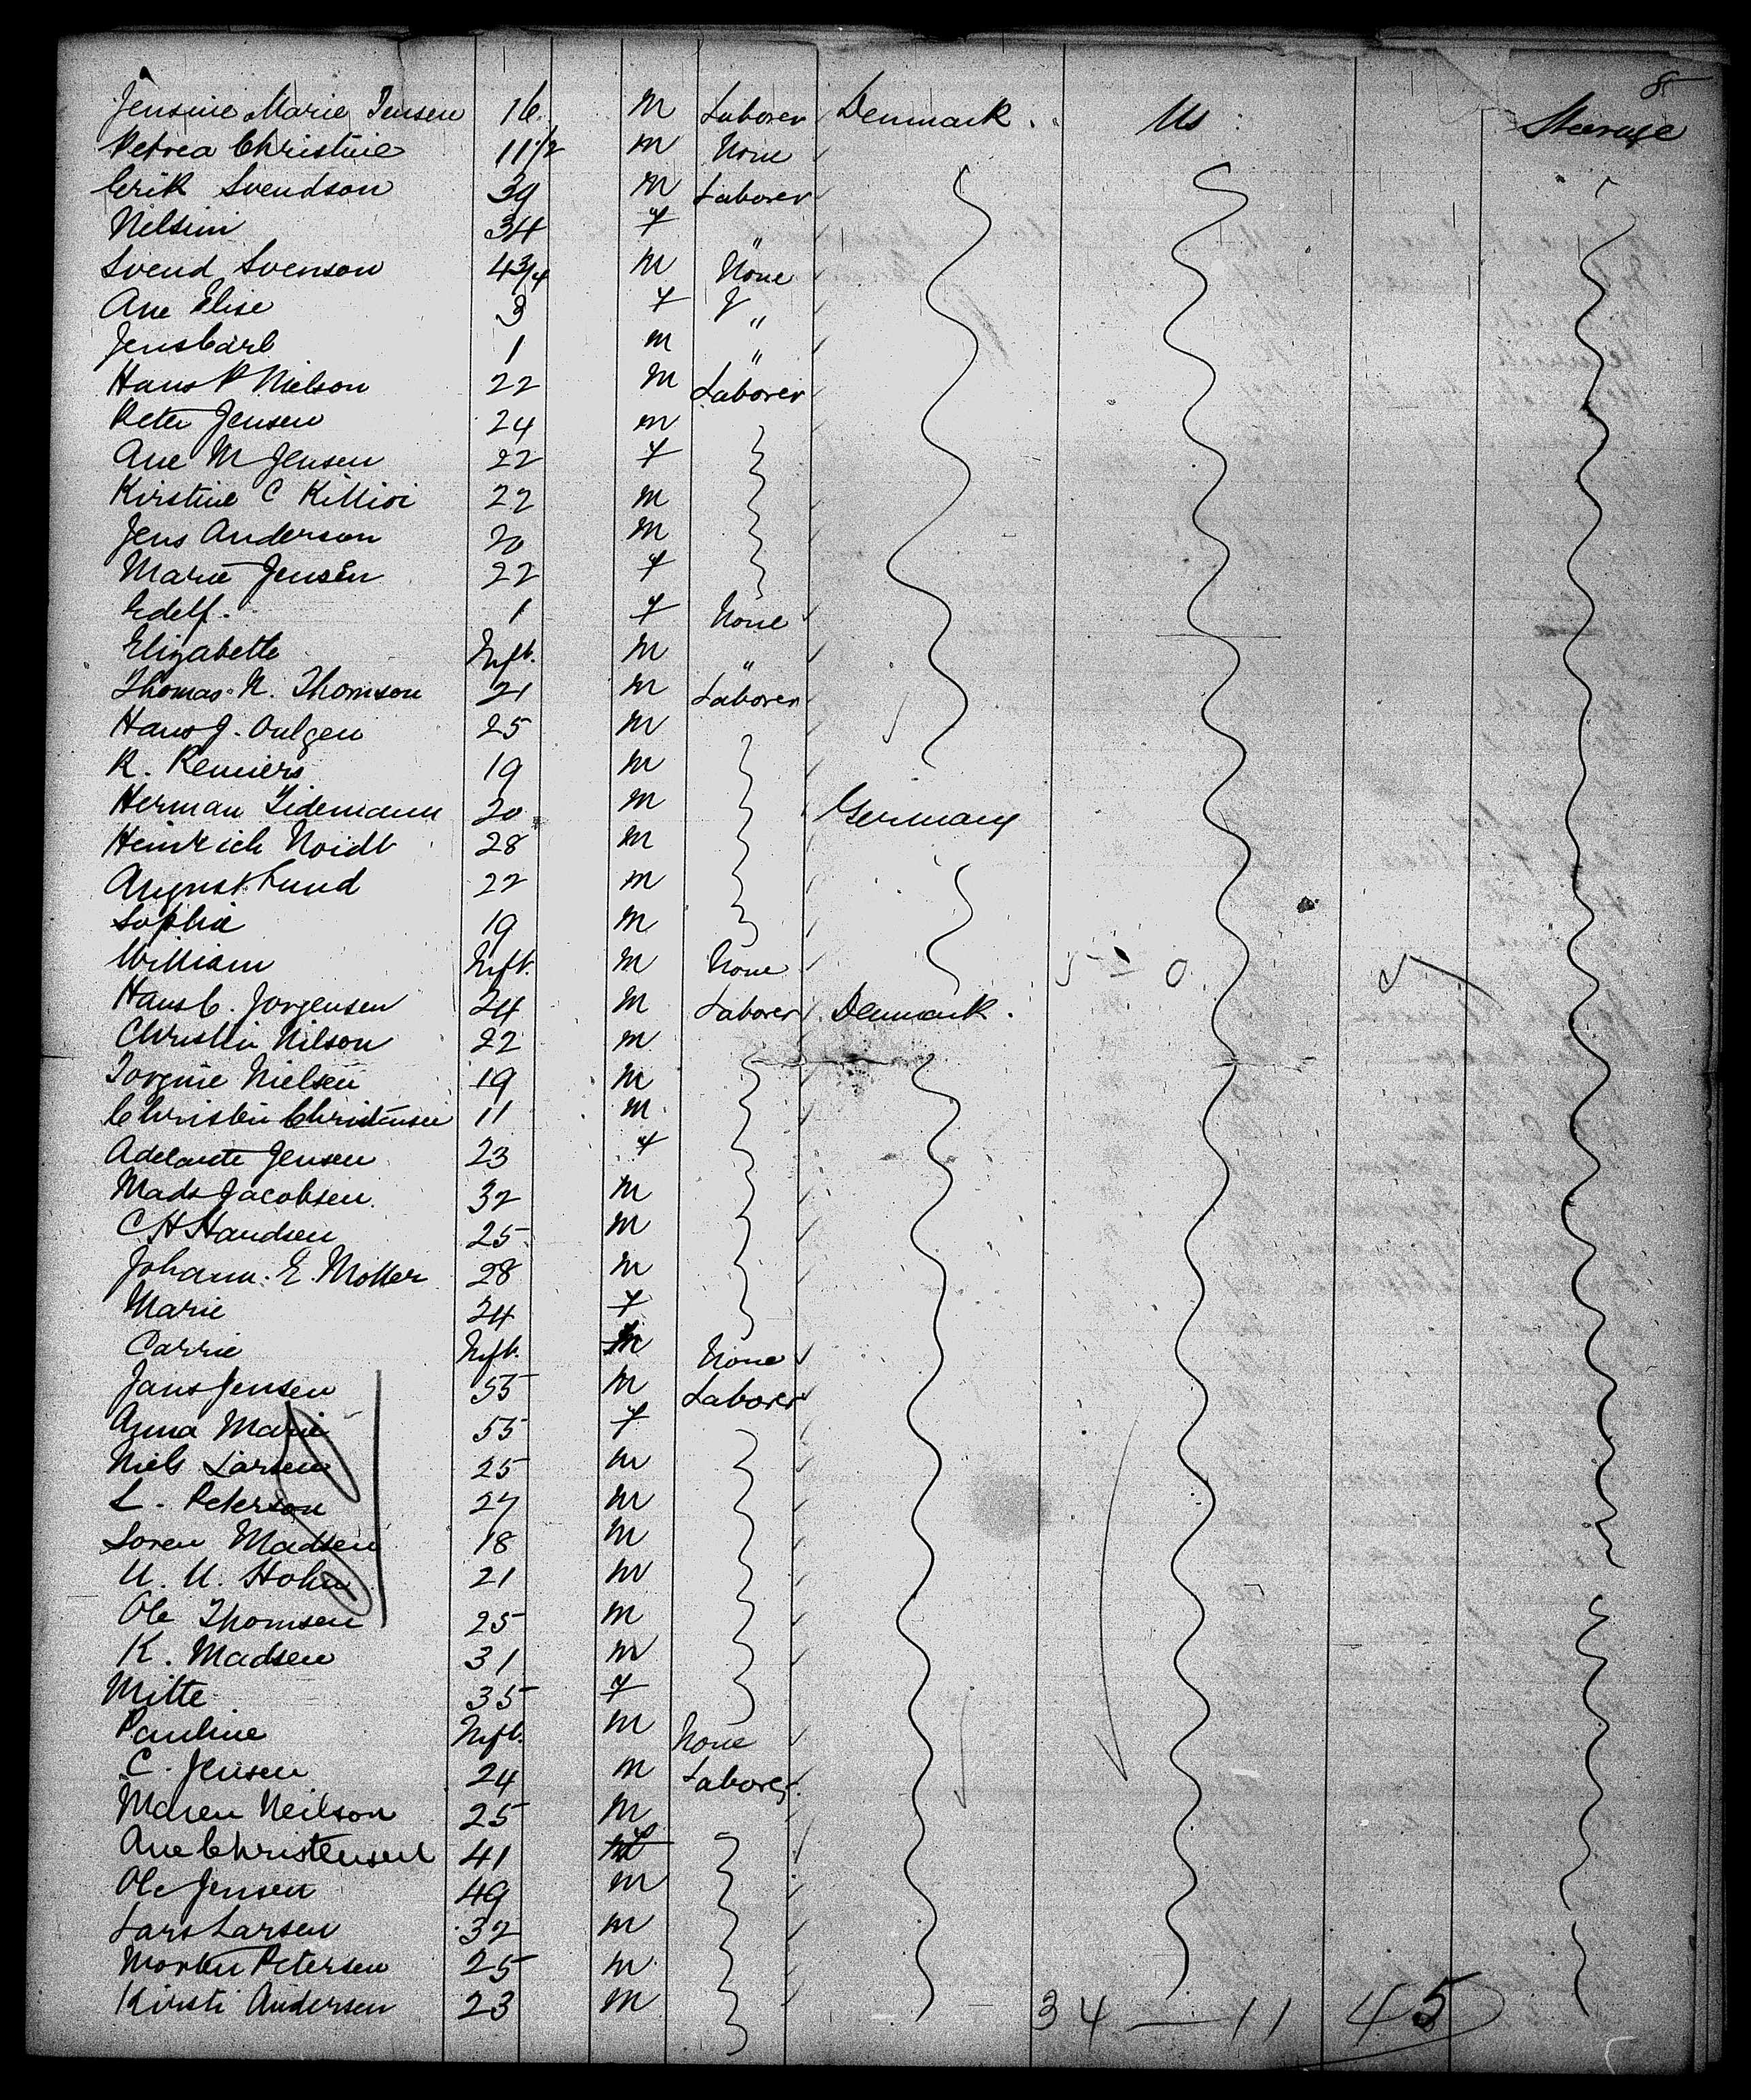 8
Jensine Marie Jensen 16 M Laborer Denmark. Us Steerage
Petrea Christine 11 1/2 M None
Erik Svendson 39 M Laborer
Nelsini 34 f "
Svend Svenson 4 3/4 M None
Ane Elise 3 f "
Jens Carl 1 M "
Hans P Nielson 22 M Laborer
Peter Jensen 24 M
Ane M Jensen 22 f
Kirstine C 22 M
Jens Anderson 20 M
Marie Jensen 22 f
Edelf. 1 f None
Elizabette Inft. M "
Thomas N. Thomson 21 M Laborer
Hans J. 25 M
R. Remiers 19 M
Herman Tidemann 20 M Germany
Heinrich Noidt 28 M
August Lund 22 M
Sophia 19 M
William Inft. M None
Hans C. Jorgensen 24 M Laborer Denmark.
Christin Nilson 22 M
Jorgine Nielsen 19 M
Christin Christensen 11 M
Adelante Jensen 23 f
Mads Jacobsen. 32 M
C H Handsen 25 M
Johann. E. Moller 28 M
Marie 24 f
Carrie Inft. M None
Jans Jensen 55 M Laborer
Anna Marie 55 f
Niels Larsen 25 M
L. Peterson 27 M
Soren Madsen 18 M
U. U. Hohn 21 M
Ole Thomsen 25 M
K. Madsen 31 M
Mitte 35 f
Pauline Inft. M None
C. Jensen 24 M Laborer
Maren Neilson 25 M
Ane Christensen 41 f
Ole Jensen 49 M
Lars Larsen 32 M
Morten Petersen 25 M
Kirsti Andersen 23 M
34 — 11 45